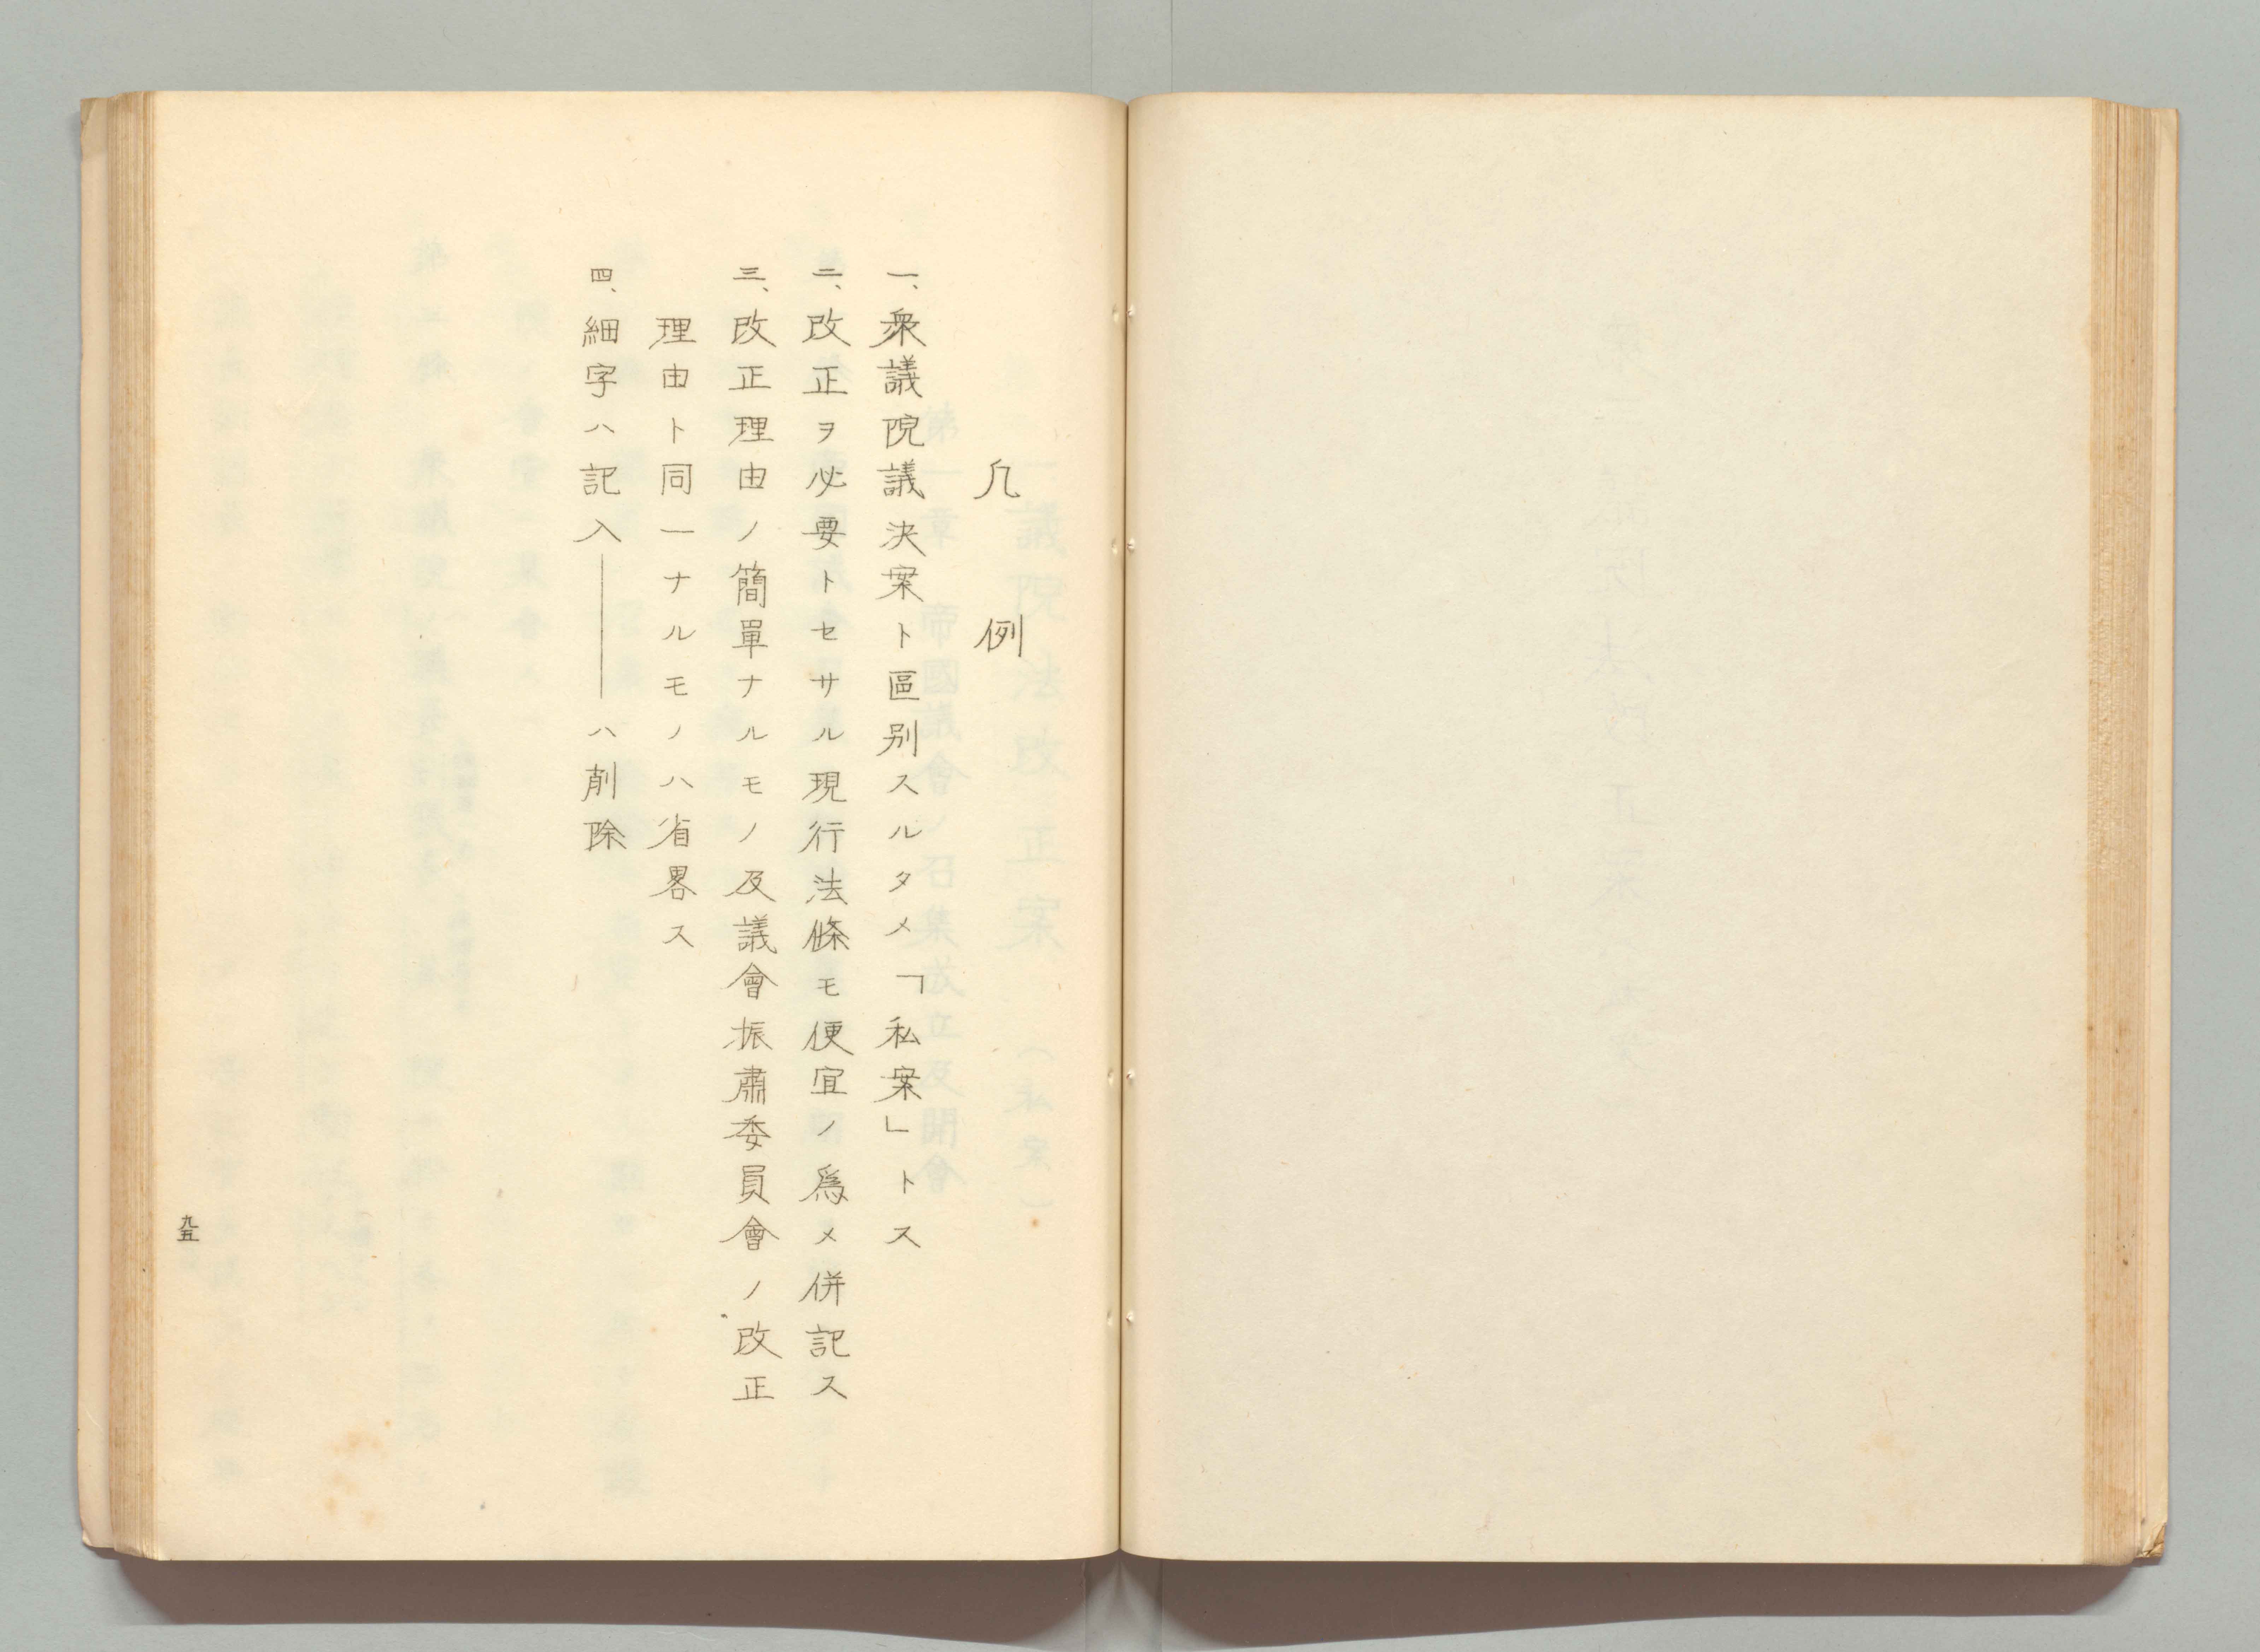 凡例
一、衆議院議決案ト區別スルタメ「私案」トス
二、改正ヲ必要トセサル現行法條モ便宜ノ爲メ併記ス
三、改正理由ノ簡單ナルモノ及議會振肅委員會ノ改正
理由ト同一ナルモノハ省畧ス
四、細字ハ記入――ハ削除
九五